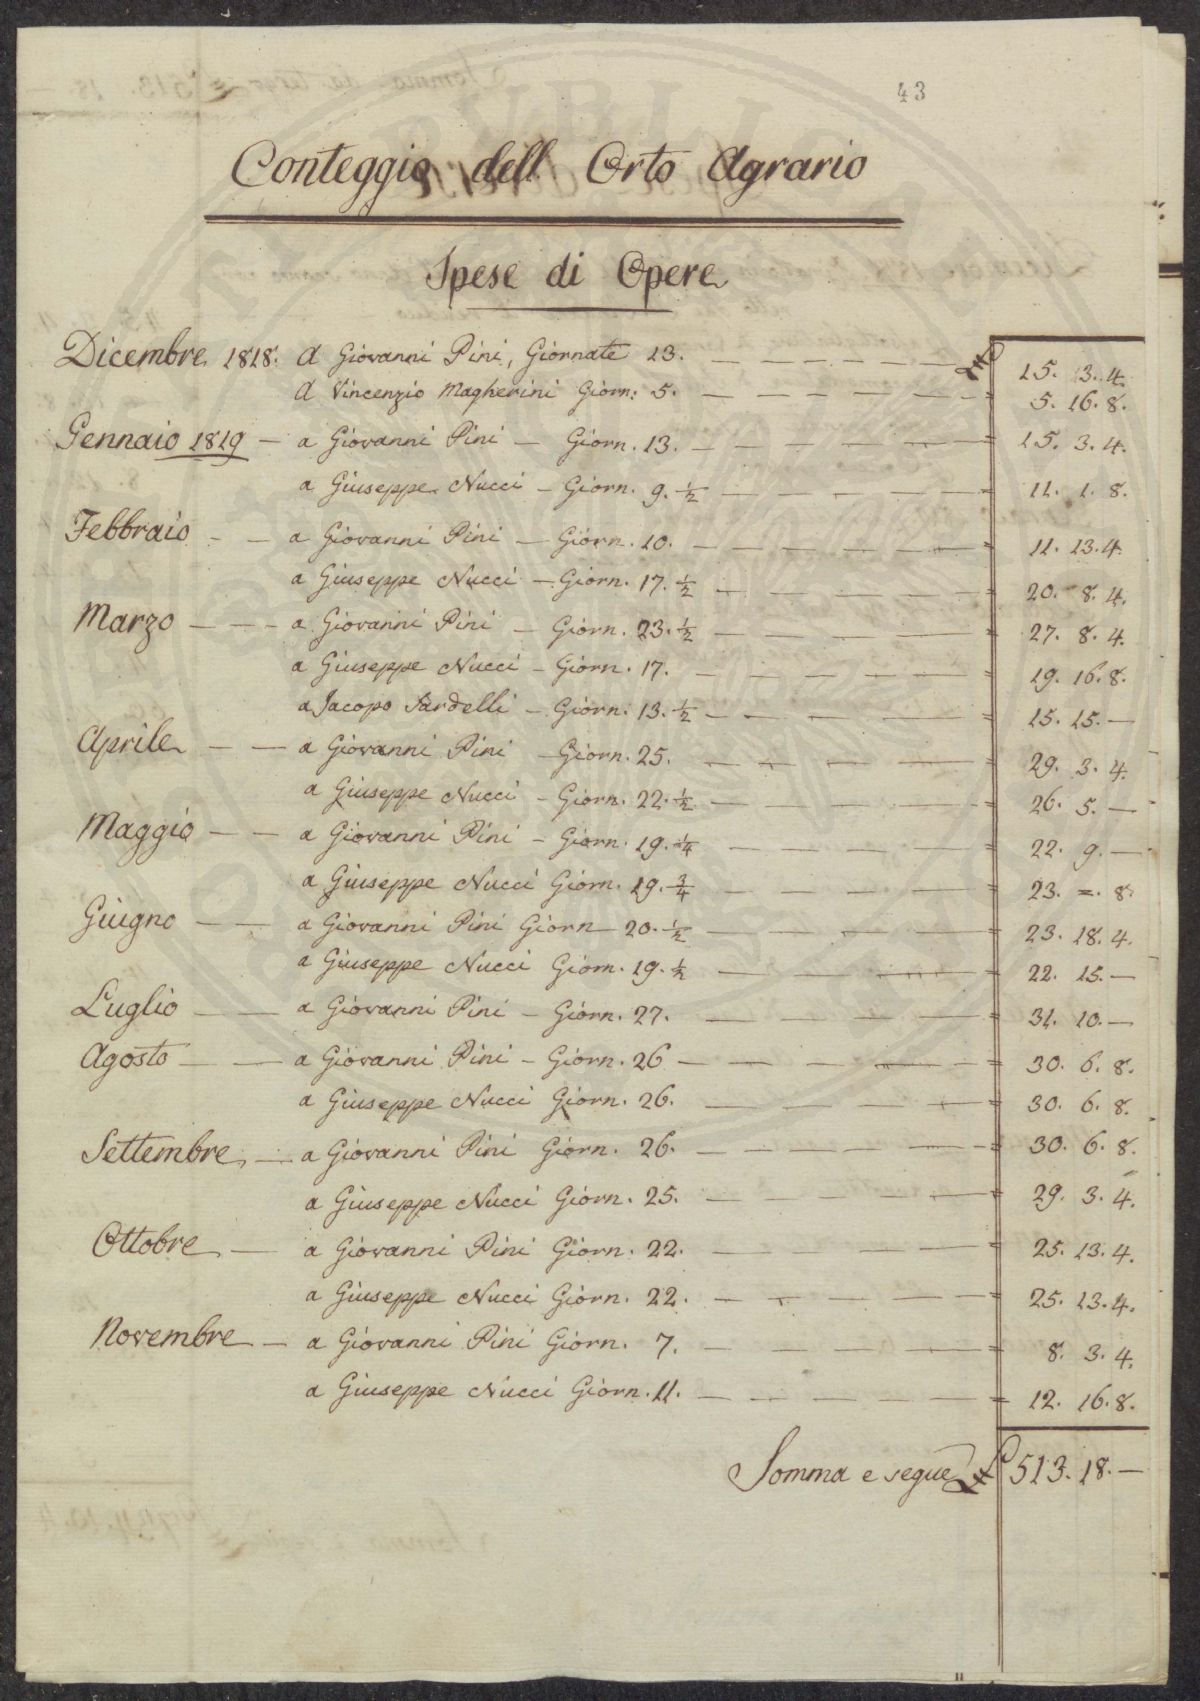 43
Conteggio dell Orto Agrario
Spese di Opere
Dicembre 1818. A Giovanni Pini, Giornate 13. 15. 3. 4.
A Vincenzio Magherini Giorn: 5. 5. 16. 8.
Gennaio 1819 — a Giovanni Pini — Giorn. 13. 15. 3. 4.
a Giuseppe Nucci — Giorn. 9. 1/2 11. 1. 8.
Febbraio — a Giovanni Pini — Giorn. 10. 11. 13. 4.
a Giuseppe Nucci — Giorn. 17. 1/2 20. 8. 4.
Marzo — a Giovanni Pini — Giorn. 23. 1/2 27. 8. 4.
a Giuseppe Nucci — Giorn. 17. 19. 16. 8.
a Jacopo Sardelli — Giorn. 13. 1/2 15. 15. —
Aprile — a Giovanni Pini — Giorn. 25. 29. 3. 4.
a Giuseppe Nucci — Giorn. 22. 1/2 26. 5. —
Maggio — a Giovanni Pini — Giorn. 19. 1/4 22. 9. —
a Giuseppe Nucci Giorn. 19. 3/4 23. =. 8.
Giugno — a Giovanni Pini Giorn 20. 1/2 23. 18. 4.
a Giuseppe Nucci Giorn. 19. 1/2 22. 15. —
Luglio — a Giovanni Pini — Giorn. 27. 31. 10. —
Agosto — a Giovanni Pini — Giorn. 26 30. 6. 8.
a Giuseppe Nucci Giorn. 26. 30. 6. 8.
Settembre — a Giovanni Pini Giorn. 26. 30. 6. 8.
a Giuseppe Nucci Giorn. 25. 29. 3. 4.
Ottobre — a Giovanni Pini Giorn. 22. 25. 13. 4.
a Giuseppe Nucci Giorn. 22. 25. 13. 4.
Novembre — a Giovanni Pini Giorn. 7. 8. 3. 4.
a Giuseppe Nucci Giorn. 11. 12. 16. 8.
Somma e segue 513. 18. —